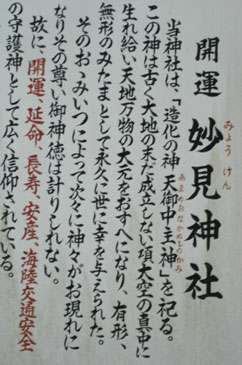 開運 妙見神社
みょうけん
当神社は、「造化の神 天御中主神」を祀る。
あまのみなかぬしのかみ
この神は古く大地の未だ成立しない頃大空の真中に
生れ給い天地万物の大元をおすへになり、有形、
無形のみたまとして永久に世に幸を与えられた。
そのおゝみいつによって次々に神々がお現れに
なりその尊い御神徳は計りしれない。
故に、開運、延命、長寿、安産、海陸交通安全
の守護神として広く信仰されている。